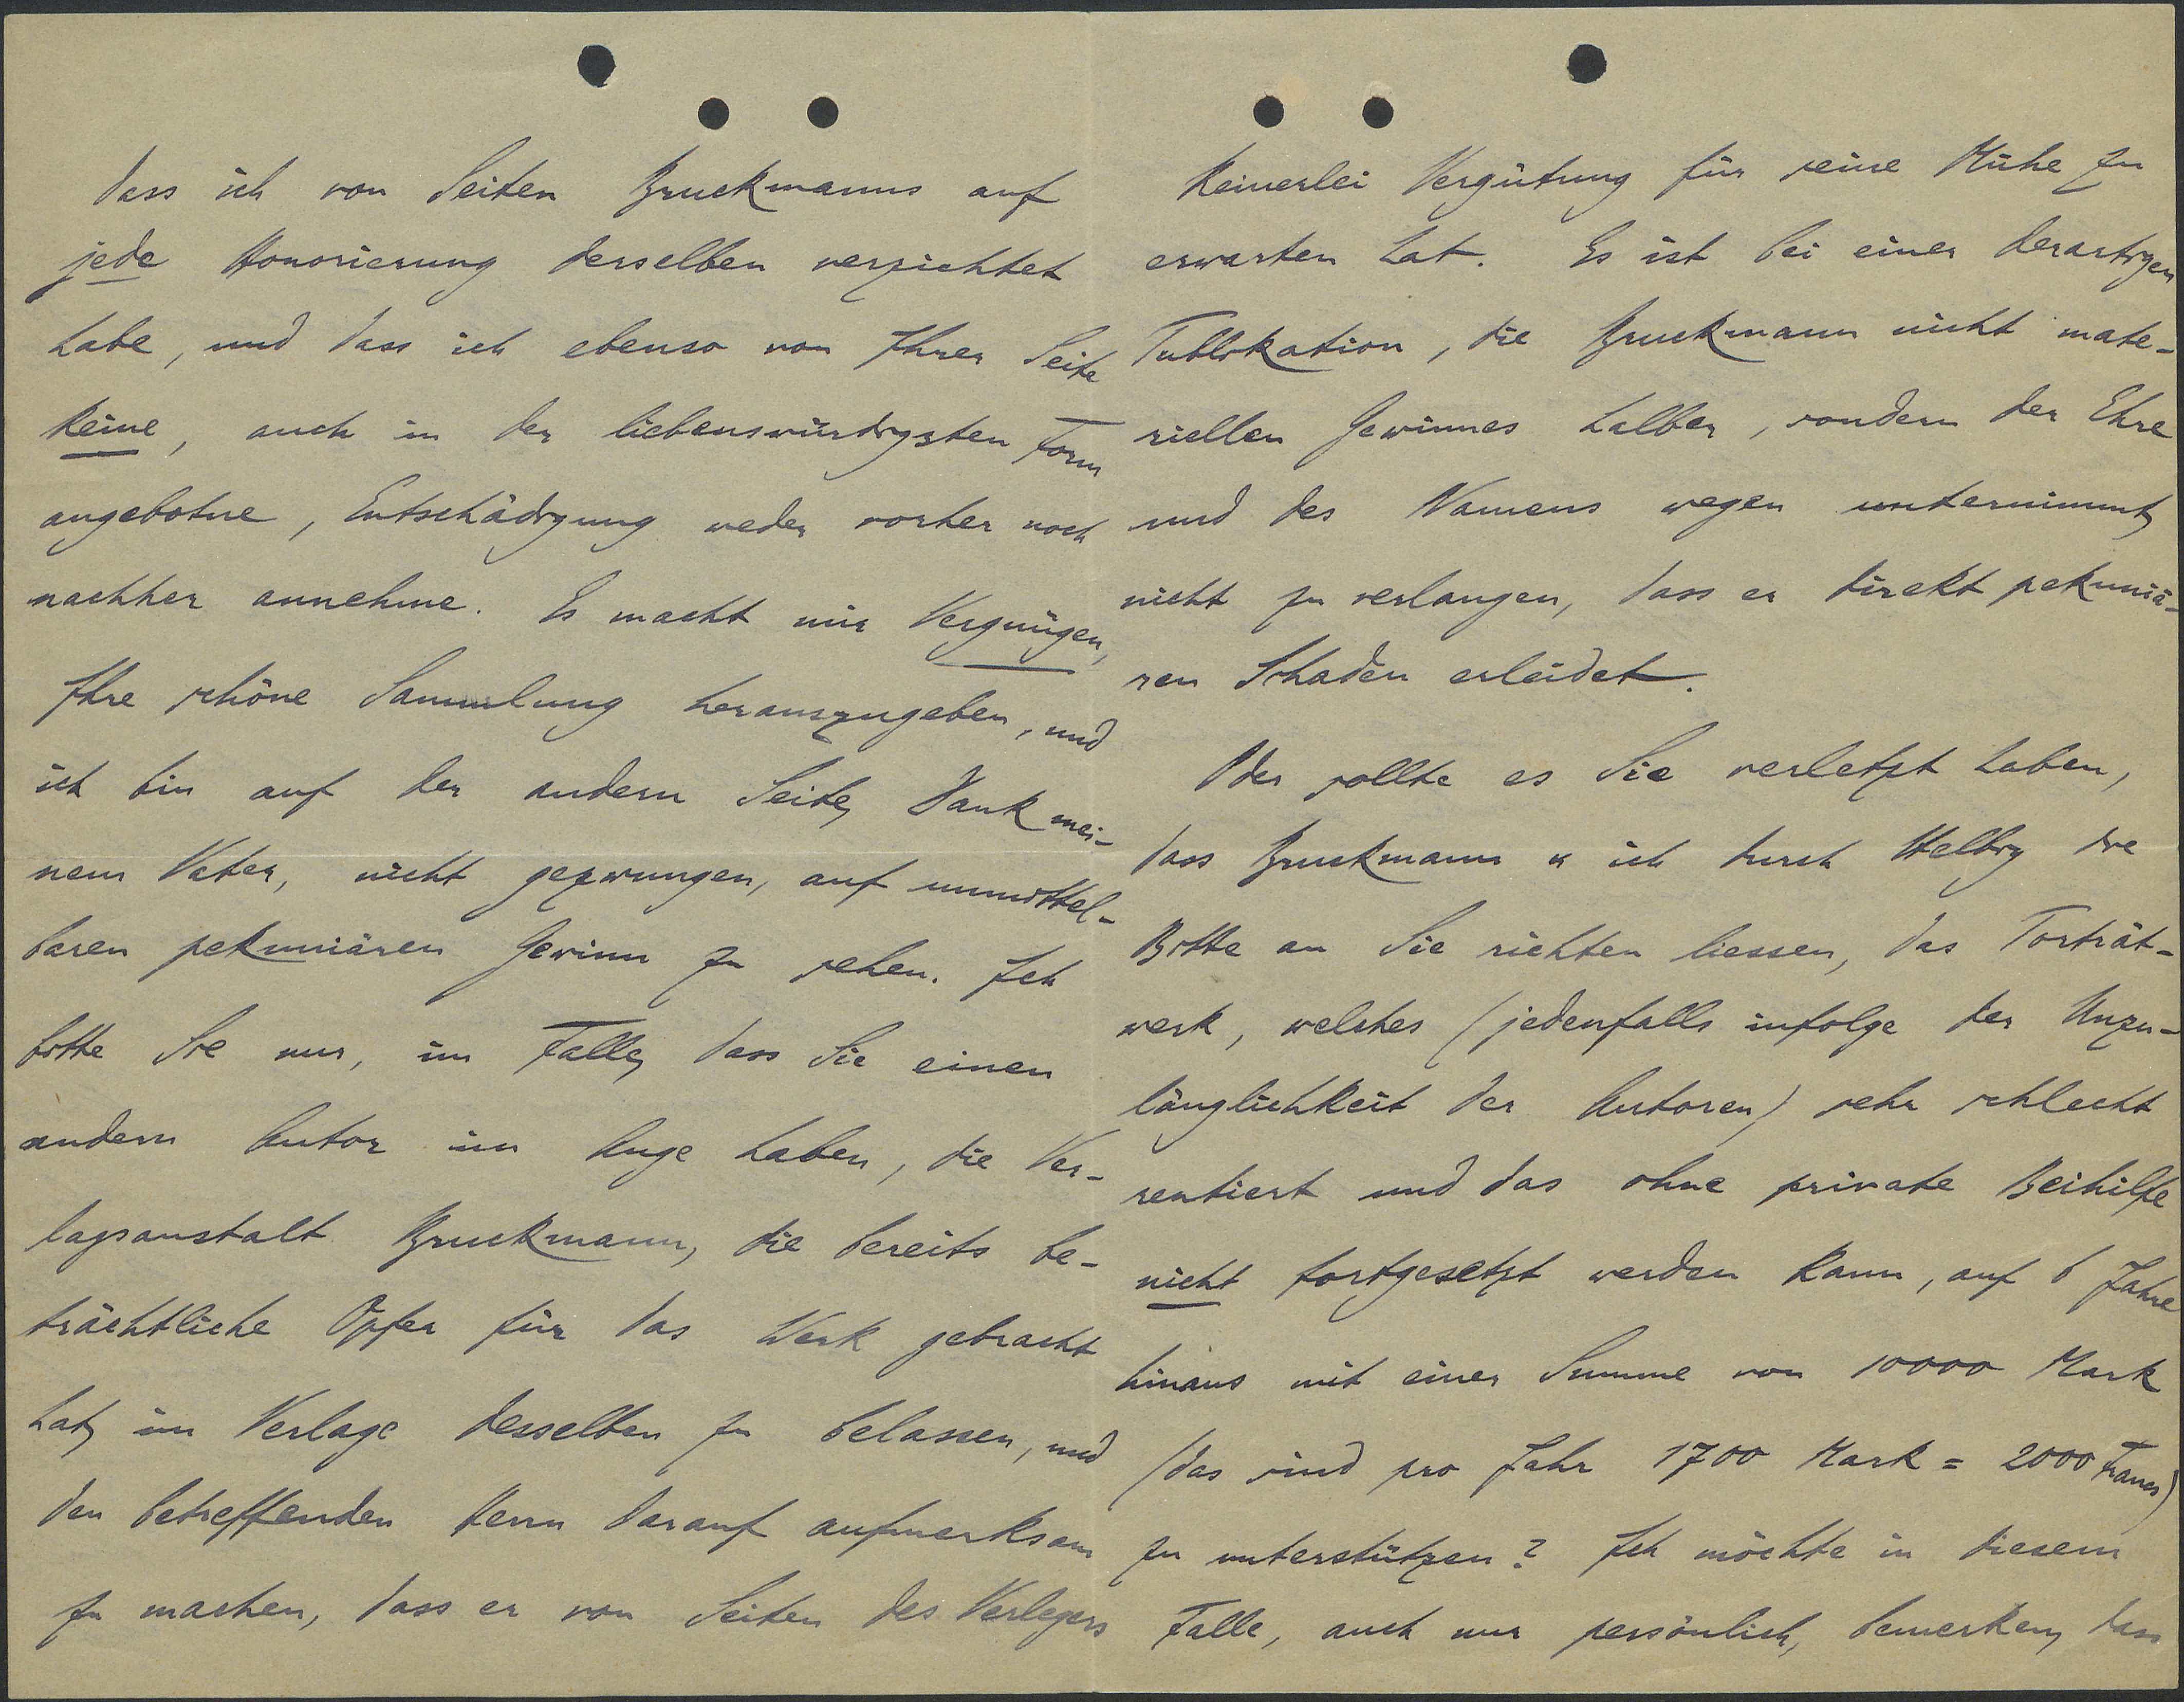 dass ich von Seiten Bruckmanns auf
jede Honorierung derselben verzichtet
habe, und dass ich ebenso von Ihrer Seite
keine, auch in der liebenswürdigsten Form
angebotne, Entschädigung weder vorher noch
nachher annehme. Es macht mir Vergnügen,
Ihre schöne Sammlung herauszugeben, und
ich bin auf der andern Seite, Dank mei-
nem Vater, nicht gezwungen, auf unmittel-
baren pekuniären Gewinn zu sehen. Ich
bitte Sie nur, im Falle, dass Sie einen
andern Autor im Auge haben, die Ver-
lagsanstalt Bruckmann, die bereits be-
trächtliche Opfer für das Werk gebracht
hat, im Verlage desselben zu belassen, und
den betreffenden Herrn darauf aufmerksam
zu machen, dass er von Seiten des Verlegers
keinerlei Vergütung für seine Mühe zu
erwarten hat. Es ist bei einer derartigen
Publikation, die Bruckmann nicht mate-
riellen Gewinnes halber, sondern der Ehre
und des Namens wegen unternimmt,
nicht zu verlangen, dass er direkt pekuniä-
ren Schaden erleidet.
Oder sollte es Sie verletzt haben,
dass Bruckmann u ich durch Helbig die
Bitte an Sie richten liessen, das Porträt-
werk, welches (jedenfalls infolge der Unzu-
länglichkeit der Autoren) sehr schlecht
rentiert und das ohne private Beihilfe
nicht fortgesetzt werden kann, auf 6 Jahre
hinaus mit einer Summe von 10000 Mark
(das sind pro Jahr 1700 Mark = 2000 Francs)
zu unterstützen? Ich möchte in diesem
Falle, auch nur persönlich, bemerken, dass